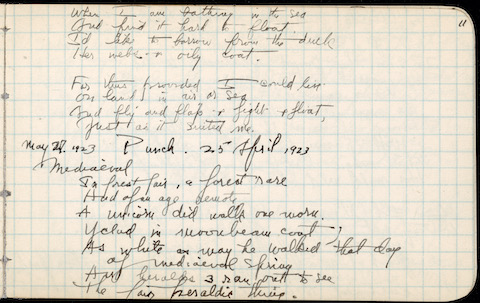 11
When I am bathing in the sea
And find it hard to float
I'd like to borrow from the duck
Her webs & oily coat.
For thus provided I could live
On land in air or sea
And fly and flap & fight & float,
Just as it suited me.
May 28. 1923 Punch. 25 April 1923
Mediaeval
In forest fair, a forest rare
And of an age remote
A unicorn did walk one morn.
Yclad in moonbeam coat;
As white as may he walked that day
of mediaeval Spring
And heralds 3 ran out to see
The fair heraldic thing.